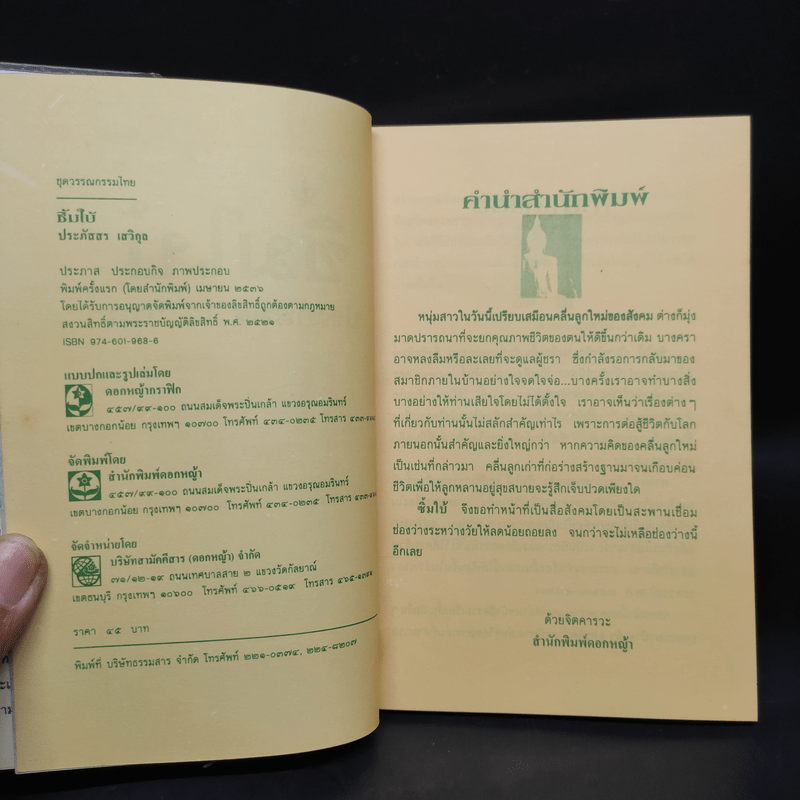 ชุดวรรณกรรมไทย
ซิ้มใบ้
ประภัสสร เสวิกุล
ประภาส ประกอบกิจ ภาพประกอบ
พิมพ์ครั้งแรก (โดยสำนักพิมพ์) เมษายน ๒๕๓๖
โดยได้รับการอนุญาตจัดพิมพ์จากเจ้าของลิขสิทธิ์ถูกต้องตามกฎหมาย
สงวนสิทธิ์ตามพระราชบัญญัติลิขสิทธิ์ พ.ศ. ๒๕๒๑
ISBN 974-601-968-6
แบบปกและรูปเล่มโดย
ดอกหญ้ากราฟิก
๔๕๗/๙๙-๑๐๐ ถนนสมเด็จพระปิ่นเกล้า แขวงอรุณอมรินทร์
เขตบางกอกน้อย กรุงเทพฯ ๑๐๗๐๐ โทรศัพท์ ๔๓๔-๐๒๓๕ โทรสาร
จัดพิมพ์โดย
สำนักพิมพ์ดอกหญ้า
๔๕๗/๙๙-๑๐๐ ถนนสมเด็จพระปิ่นเกล้า แขวงอรุณอมรินทร์
เขตบางกอกน้อย กรุงเทพฯ ๑๐๗๐๐ โทรศัพท์ ๔๓๔-๐๒๓๕ โทรสาร
จัดจำหน่ายโดย
บริษัทสามัคคีสาร (ดอกหญ้า) จำกัด
๗๑/๑๒-๑๙ ถนนเทศบาลสาย ๒ แขวงวัดกัลยาณ์
เขตธนบุรี กรุงเทพฯ ๑๐๖๐๐ โทรศัพท์ ๔๖๖-๐๕๑๙ โทรสาร
ราคา ๔๕ บาท
พิมพ์ที่ บริษัทธรรมสาร จำกัด โทรศัพท์ ๒๒๑-๐๓๗๔, ๒๒๔-๘๒๐๗
คำนำสำนักพิมพ์
หนุ่มสาวในวันนี้เปรียบเสมือนคลื่นลูกใหม่ของสังคม ต่างก็มุ่ง
มาดปรารถนาที่จะยกคุณภาพชีวิตของตนให้ดีขึ้นกว่าเดิม บางครา
อาจหลงลืมหรือละเลยที่จะดูแลผู้ชรา ซึ่งกำลังรอการกลับมาของ
สมาชิกภายในบ้านอย่างใจจดใจจ่อ...บางครั้งเราอาจทำบางสิ่ง
บางอย่างให้ท่านเสียใจโดยไม่ได้ตั้งใจ เราอาจเห็นว่าเรื่องต่างๆ
ที่เกี่ยวกับท่านนั้นไม่สลักสำคัญเท่าไร เพราะการต่อสู้ชีวิตกับโลก
ภายนอกนั้นสำคัญและยิ่งใหญ่กว่า หากความคิดของคลื่นลูกใหม่
เป็นเช่นที่กล่าวมา คลื่นลูกเก่าที่ก่อร่างสร้างฐานมาจนเกือบค่อน
ชีวิตเพื่อให้ลูกหลานอยู่สุขสบายจะรู้สึกเจ็บปวดเพียงใด
ซิ้มใบ้ จึงขอทำหน้าที่เป็นสื่อสังคมโดยเป็นสะพานเชื่อม
ช่องว่างระหว่างวัยให้ลดน้อยถอยลง จนกว่าจะไม่เหลือช่องว่างนี้
อีกเลย
ด้วยจิตคารวะ
สำนักพิมพ์ดอกหญ้า